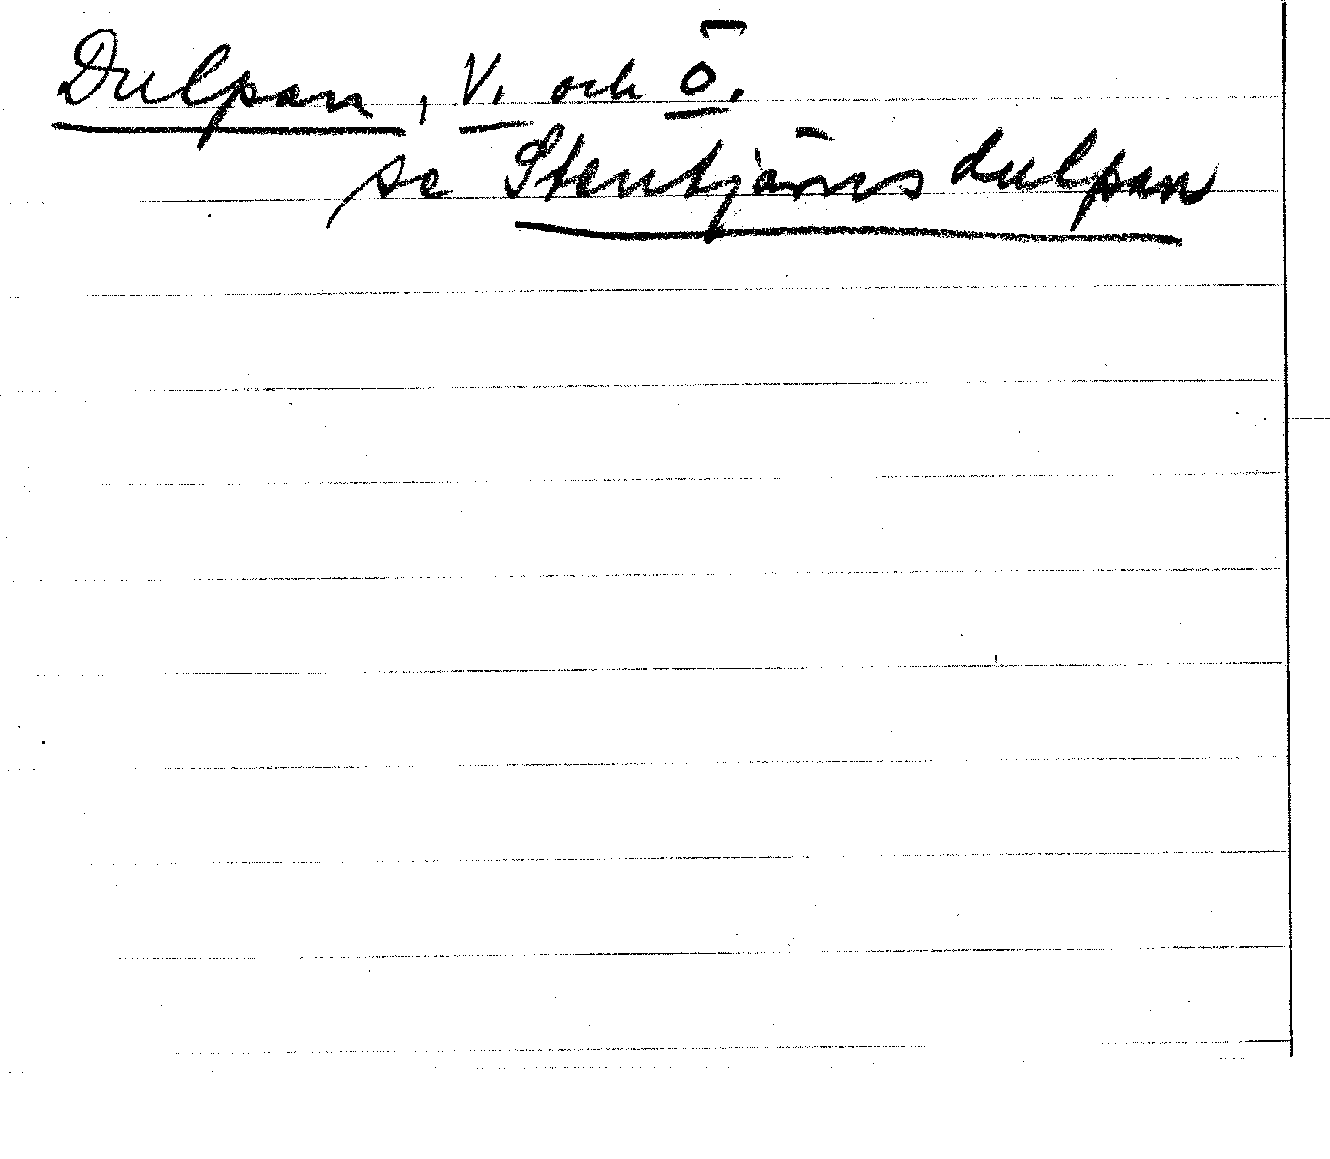 Dulpan, V. och Ö.
se Stentjärnsdulpan